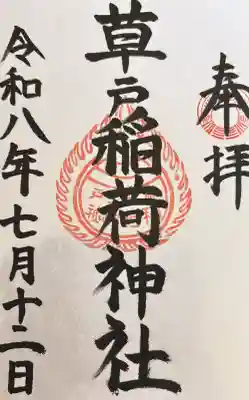 奉拝
草戸稲荷神社
令和八年七月十二日